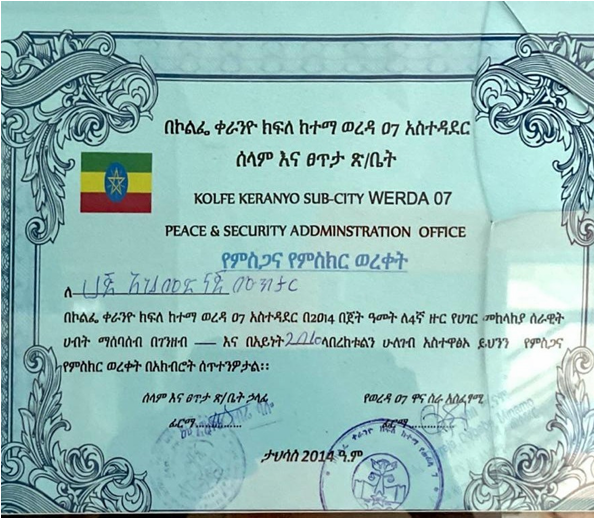 በኮልፌ ቀራንዮ ክፍለ ከተማ ወረዳ 07 አስተዳደር
ሰላም እና ፀጥታ ጽ/ቤት
KOLFE KERANYO SUB-CITY WERDA 07
PEACE & SECURITY ADDMINSTRATION OFFICE
የምስጋና የምስክር ወረቀት
ለ
በኮልፌ ቀራንዮ ክፍለ ከተማ ወረዳ 07 አስተዳደር በ2014 በጀት ዓመት ለ4ኛ ዙር የሀገር መከላከያ ሰራዊት
ሀብት ማሰባሰብ በገንዘብ — እና በአይነት ላበረከቱልን ሁለገብ አስተዋፅኦ ይህንን የምስጋና
የምስክር ወረቀት በአክብሮት ሰጥተንዎታል፡፡
ሰላም እና ፀጥታ ጽ/ቤት ኃላፊ
የወረዳ 07 ዋና ስራ አስፈፃሚ
ፊርማ..............
ፊርማ..............
ታህሳስ 2014 ዓ.ም